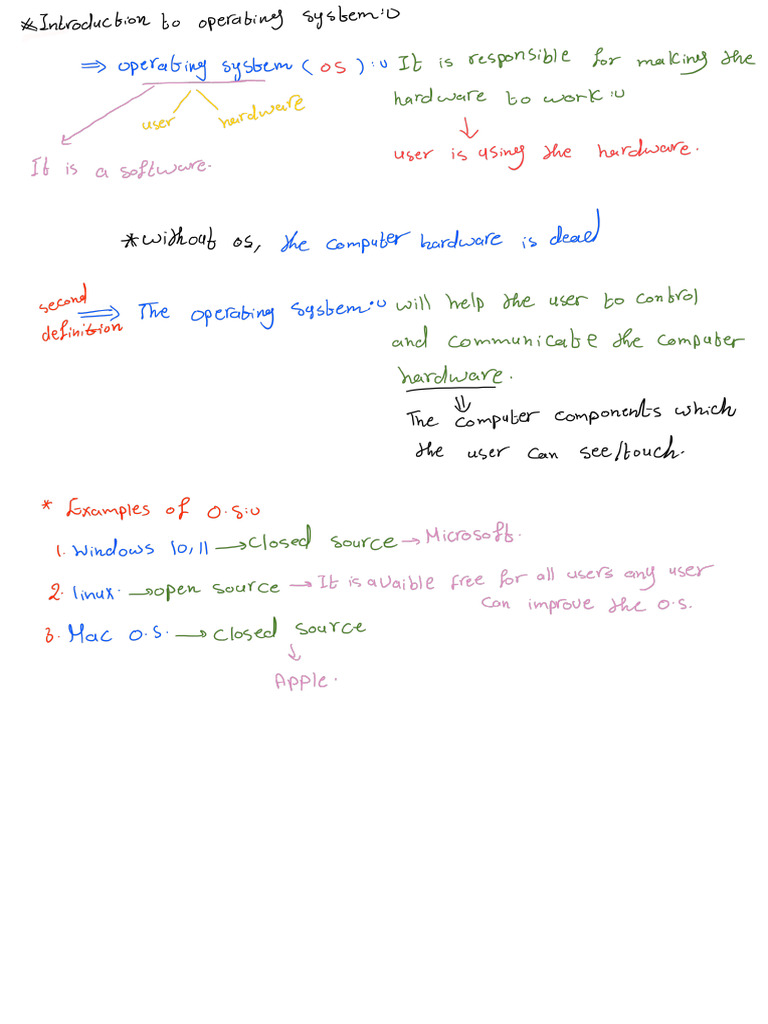 *Introduction to operating system:
⇒ operating system (OS): It is responsible for making the
hardware to work:
user hardware
↓
user is using the hardware.
It is a software.
*without os, the computer hardware is dead
second
definition
⇒ The operating system: will help the user to control
and communicate the computer
hardware.
⇓
The computer components which
the user can see/touch.
* Examples of O.S:
1. Windows 10,11 → Closed source → Microsoft.
2. linux. → open source → It is avaible free for all users any user
can improve the o.s.
3. Mac O.S. → Closed source
↓
Apple.